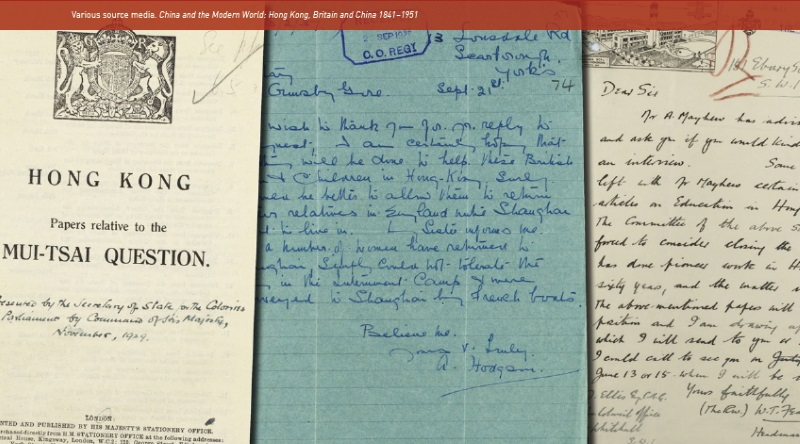 Various source media. China and the Modern World: Hong Kong, Britain and China 1841–1951
HONG KONG
Papers relative to the
MUI-TSAI QUESTION.
by the Secretary of State for the Colonies
Parliament by Command of His Majesty,
November, 1929.
LONDON:
NTED AND PUBLISHED BY HIS MAJESTY'S STATIONERY OFFICE
rchased directly from H.M. STATIONERY OFFICE at the following addresses:
C.O. REGY
3 Lonsdale Rd
Scarborough.
Yorks
74
Ormsby Gore. Sept. 21st
wish to thank you for yr. reply to
I am certainly hoping that
will be done to help these British
& Children in Hong-Kong, Surely
be better to allow them to return
relatives in England until Shanghai
to live in. My Sister informs me.
a number of women have returned to
Simply could not tolerate the
in the Internment Camp & were
to Shanghai by French boats.
Believe me.
Yours V. Truly.
A. Hodgson.
Ebury
S.W.1
Dear Sir
Mr A. Mayhew has
and ask you if you would kind
an interview. Some
left with Mr Mayhew certain
articles on Education in Hong
The Committee of the above
forced to consider closing the
has done pioneer work in H
sixty years, and the matter
The above-mentioned papers will
position and I am drawing
which I will send to you
I could call to see you on
June 13 or 15 when I will be
Yours faithfully
Colonial Office
Whitehall
(The Rev.) W.T.